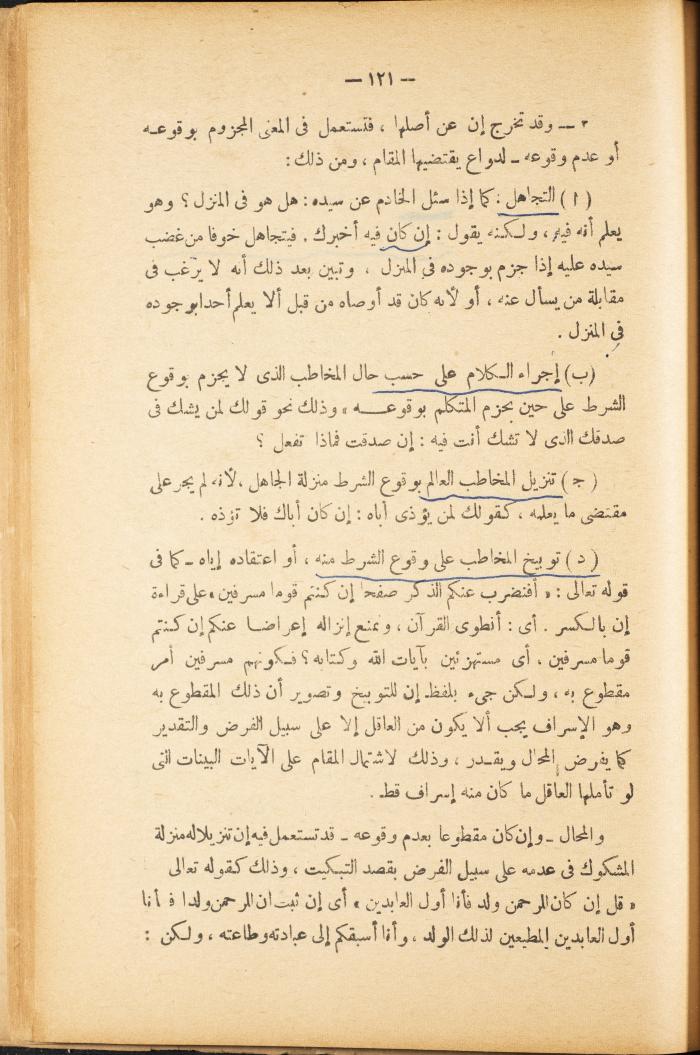 — ١٢١ —
٣ — وقد تخرج إن عن أصلها ، فتستعمل فى المعنى المجزوم بوقوعه
أو عدم وقوعه ــ لدواع يقتضيها المقام ، ومن ذلك :
( ا ) التجاهل : كما إذا سئل الخادم عن سيده : هل هو فى المنزل ؟ وهو
يعلم أنه فيه ، ولكنه يقول : إن كان فيه أخبرك . فيتجاهل خوفا من غضب
سيده عليه إذا جزم بوجوده فى المنزل ، وتبين بعد ذلك أنه لا يرغب فى
مقابلة من يسأل عنه ، أو لأنه كان قد أوصاه من قبل ألا يعلم أحدا بوجوده
فى المنزل .
(ب) إجراء الكلام على حسب حال المخاطب الذى لا يجزم بوقوع
الشرط على حين يجزم المتكلم بوقوعه ، وذلك نحو قولك لمن يشك فى
صدقك الذى لا تشك أنت فيه : إن صدقت فماذا تفعل ؟
( ج ) تنزيل المخاطب العالم بوقوع الشرط منزلة الجاهل ، لأنه لم يجر على
مقتضى ما يعلمه ، كقولك لمن يؤذى أباه : إن كان أباك فلا تؤذه .
( د ) توبيخ المخاطب على وقوع الشرط منه ، أو اعتقاده إياه ــ كما فى
قوله تعالى : « أفنضرب عنكم الذكر صفحا إن كنتم قوما مسرفين » على قراءة
إن بالكسر . أى : أنطوى القرآن ، ونمنع إنزاله إعراضا عنكم إن كنتم
قوما مسرفين . أى مستهزئين بآيات الله وكتابه ؟ فكونهم مسرفين أمر
مقطوع به ، ولكن جىء بلفظ إن للتوبيخ وتصوير أن ذلك المقطوع به
وهو الإسراف يجب ألا يكون من العاقل إلا على سبيل الفرض والتقدير
كما يفرض المحال ويقدر ، وذلك لاشتمال المقام على الآيات البينات التى
لو تأملها العاقل ما كان منه إسراف قط .
والمحال ــ وإن كان مقطوعا بعدم وقوعه ــ قد تستعمل فيه إن تنزيلا له منزلة
المشكوك فى عدمه على سبيل الفرض بقصد التبكيت ، وذلك كقوله تعالى
« قل إن كان للرحمن ولد فأنا أول العابدين » أى إن ثبت ان للرحمن ولدا فأنا
أول العابدين المطيعين لذلك الولد ، وأنا أسبقكم إلى عبادته وطاعته ، ولكن :